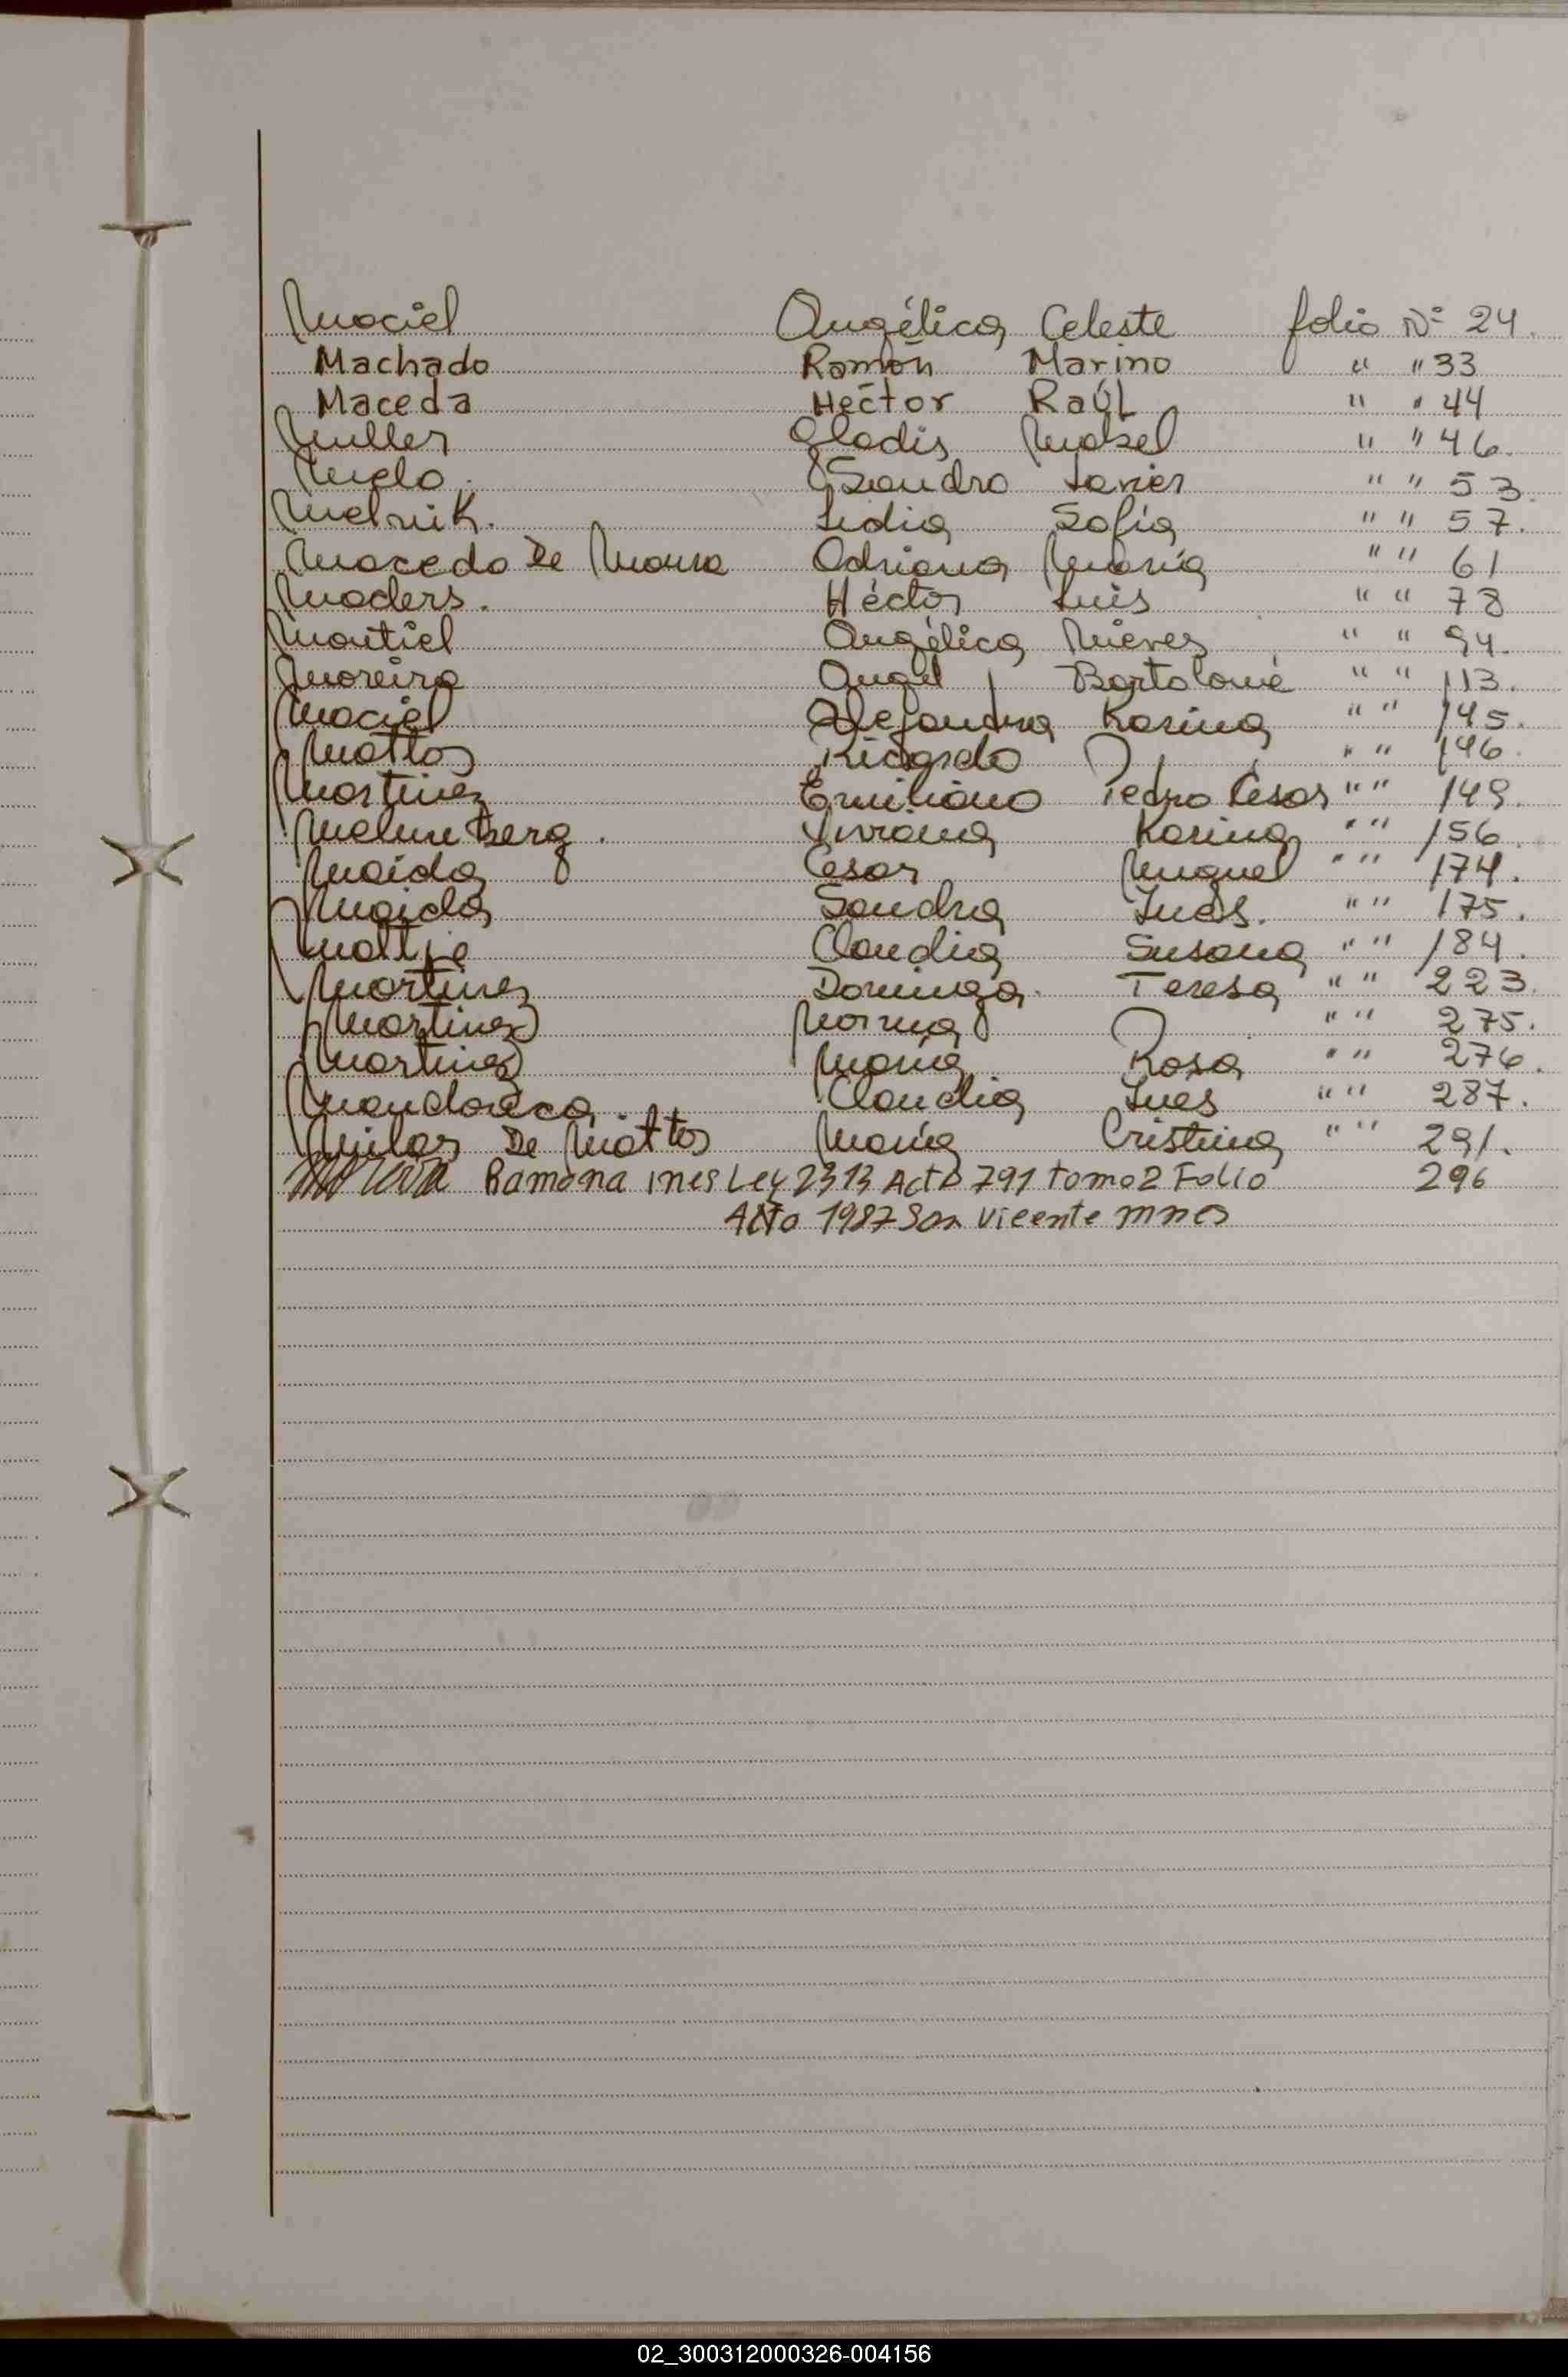 Maciel Angélica Celeste folio Nº 24.
Machado Ramón Marino " " 33
Maceda Héctor Raúl " " 44
Muller Gladis Mabel " " 46.
Melo. Sandro Javier " " 53.
Melnik. Lidia Sofía " " 57.
Macedo De Moura Adriana María " " 61
Maders. Héctor Luis " " 78
Montiel Angélica Nieves " " 94.
Moreira Angel Bartolomé " " 113.
Maciel Alejandra Karina " " 145.
Mattos Ricardo " " 146.
Martinez Emiliano Pedro César " " 149.
Viviana Karina " " 156.
Maida Cesar Miguel " " 174.
Maida Sandra Ines. " " 175.
Mattje Claudia Susana " " 184.
Martinez Dominga. Teresa " " 223.
Martinez Norma " " 275.
Martinez María Rosa " " 276.
Claudia Ines " " 287.
De Mattos María Cristina " " 291.
Ramona ines Ley 2313 Acta 791 tomo 2 Folio 296
Año 1987 San Vicente mnes
02_300312000326-004156